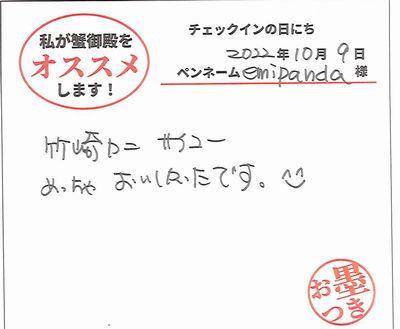 私が蟹御殿を
オススメ
します！
チェックインの日にち
2022年10月9日
ペンネームemipanda様
竹崎カニ サイコー
めっちゃ おいしかったです。^^
お墨つき